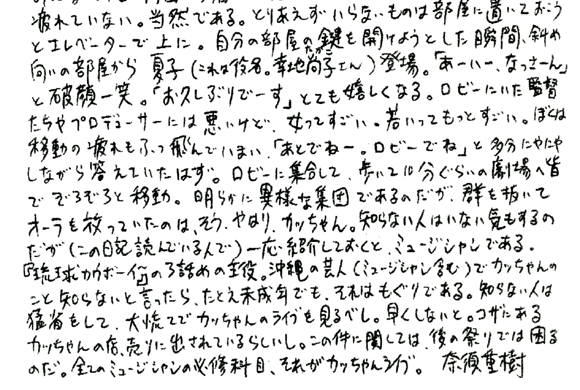 疲れていない。当然である。とりあえずいらないものは部屋に置いておこう
とエレベーターで上に。自分の部屋の鍵を開けようとした瞬間、斜め
向いの部屋から夏子(これは役名。幸地尚子さん)登場。「あーいー、なっさーん」
と破顔一笑。「お久しぶりでーす」とても嬉しくなる。ロビーにいた監督
たちやプロデューサーには悪いけど、女ってすごい。若いってもっとすごい。ぼくは
移動の疲れもふっ飛んでいまい、「あとでねー。ロビーでね」と多分にやにや
しながら答えていたはず。ロビーに集合して、歩いて10分ぐらいの劇場へ皆
でぞろぞろと移動。明らかに異様な集団であるのだが、群を抜いて
オーラを放っていたのは、そう、やはり、カッちゃん。知らない人はいない気もするの
だが(この日記読んでいる人で)一応紹介しておくと、ミュージシャンである。
『琉球カウボーイ』の3話めの主役。沖縄の芸人(ミュージシャン含む)でカッちゃんの
こと知らないと言ったら、たとえ未成年でも、それはもぐりである。知らない人は
猛省をして、大慌てでカッちゃんのライブを見るべし。早くしないと。コザにある
カッちゃんの店、売りに出されているらしいし。この件に関しては、後の祭りでは困る
のだ。全てのミュージシャンの必修科目、それがカッちゃんライブ。 奈須重樹